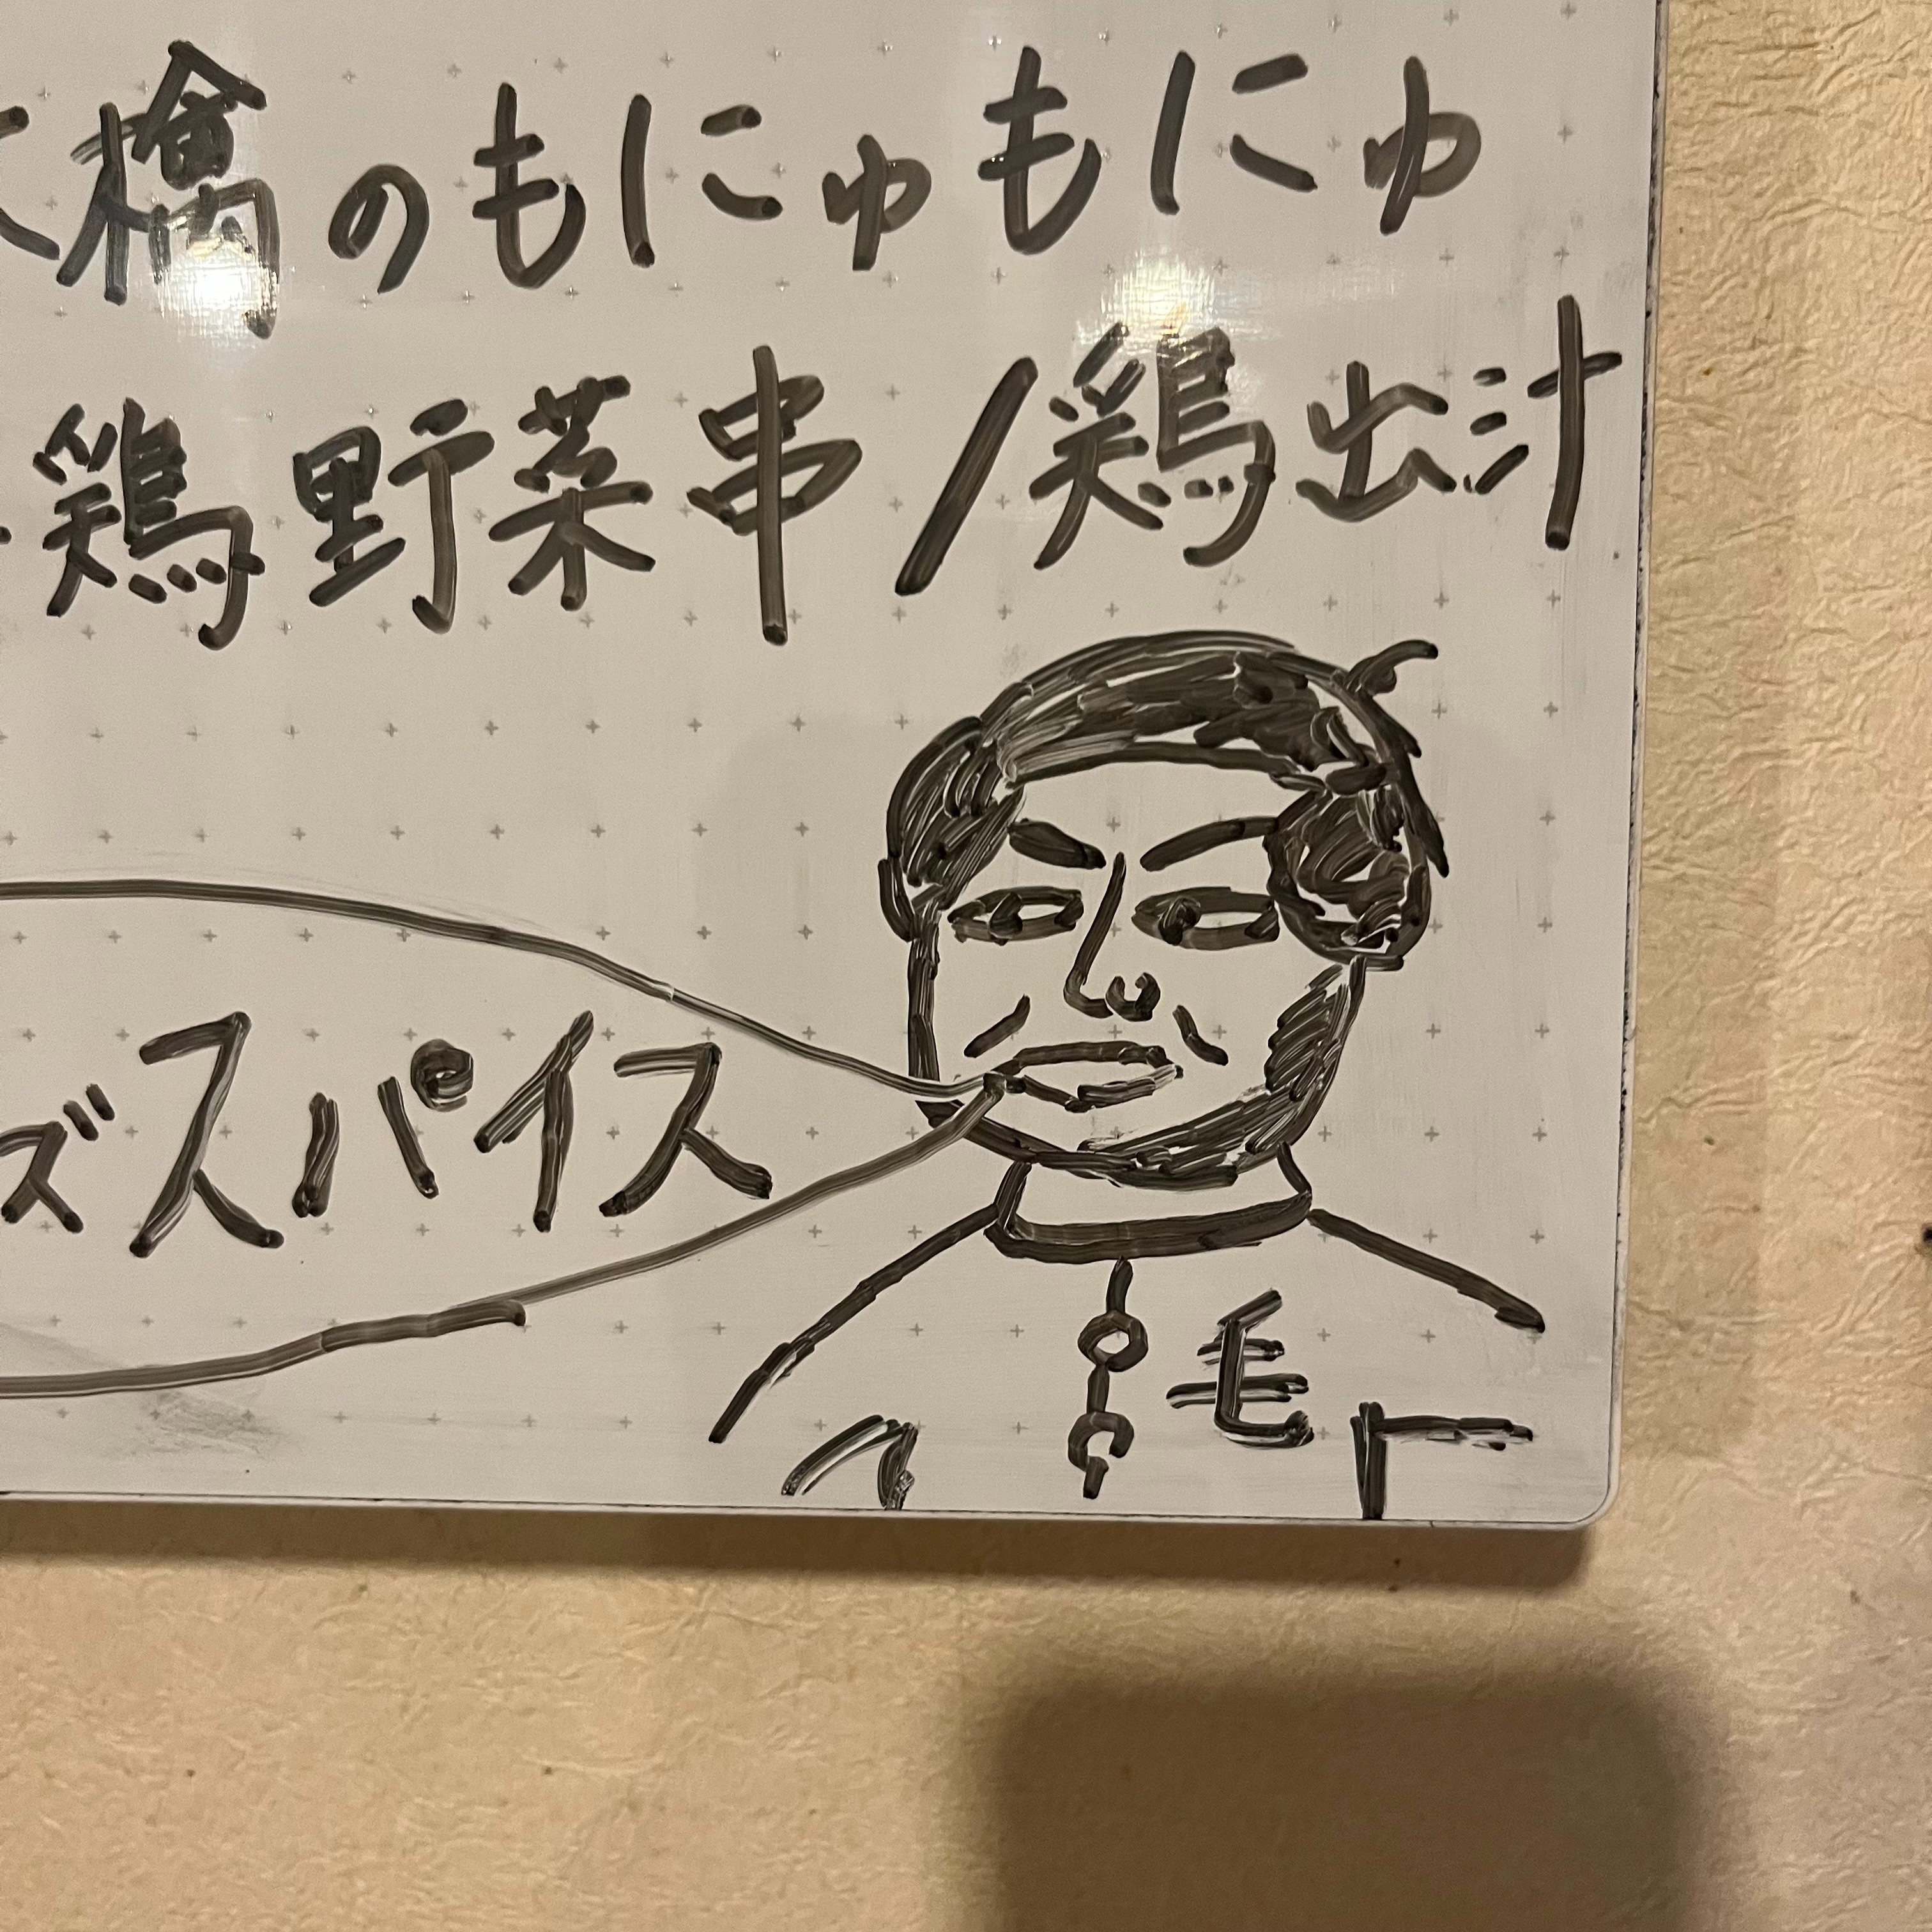 橋のもにゅもにゅ
鶏野菜串/鶏出汁
ズスパイス
毛